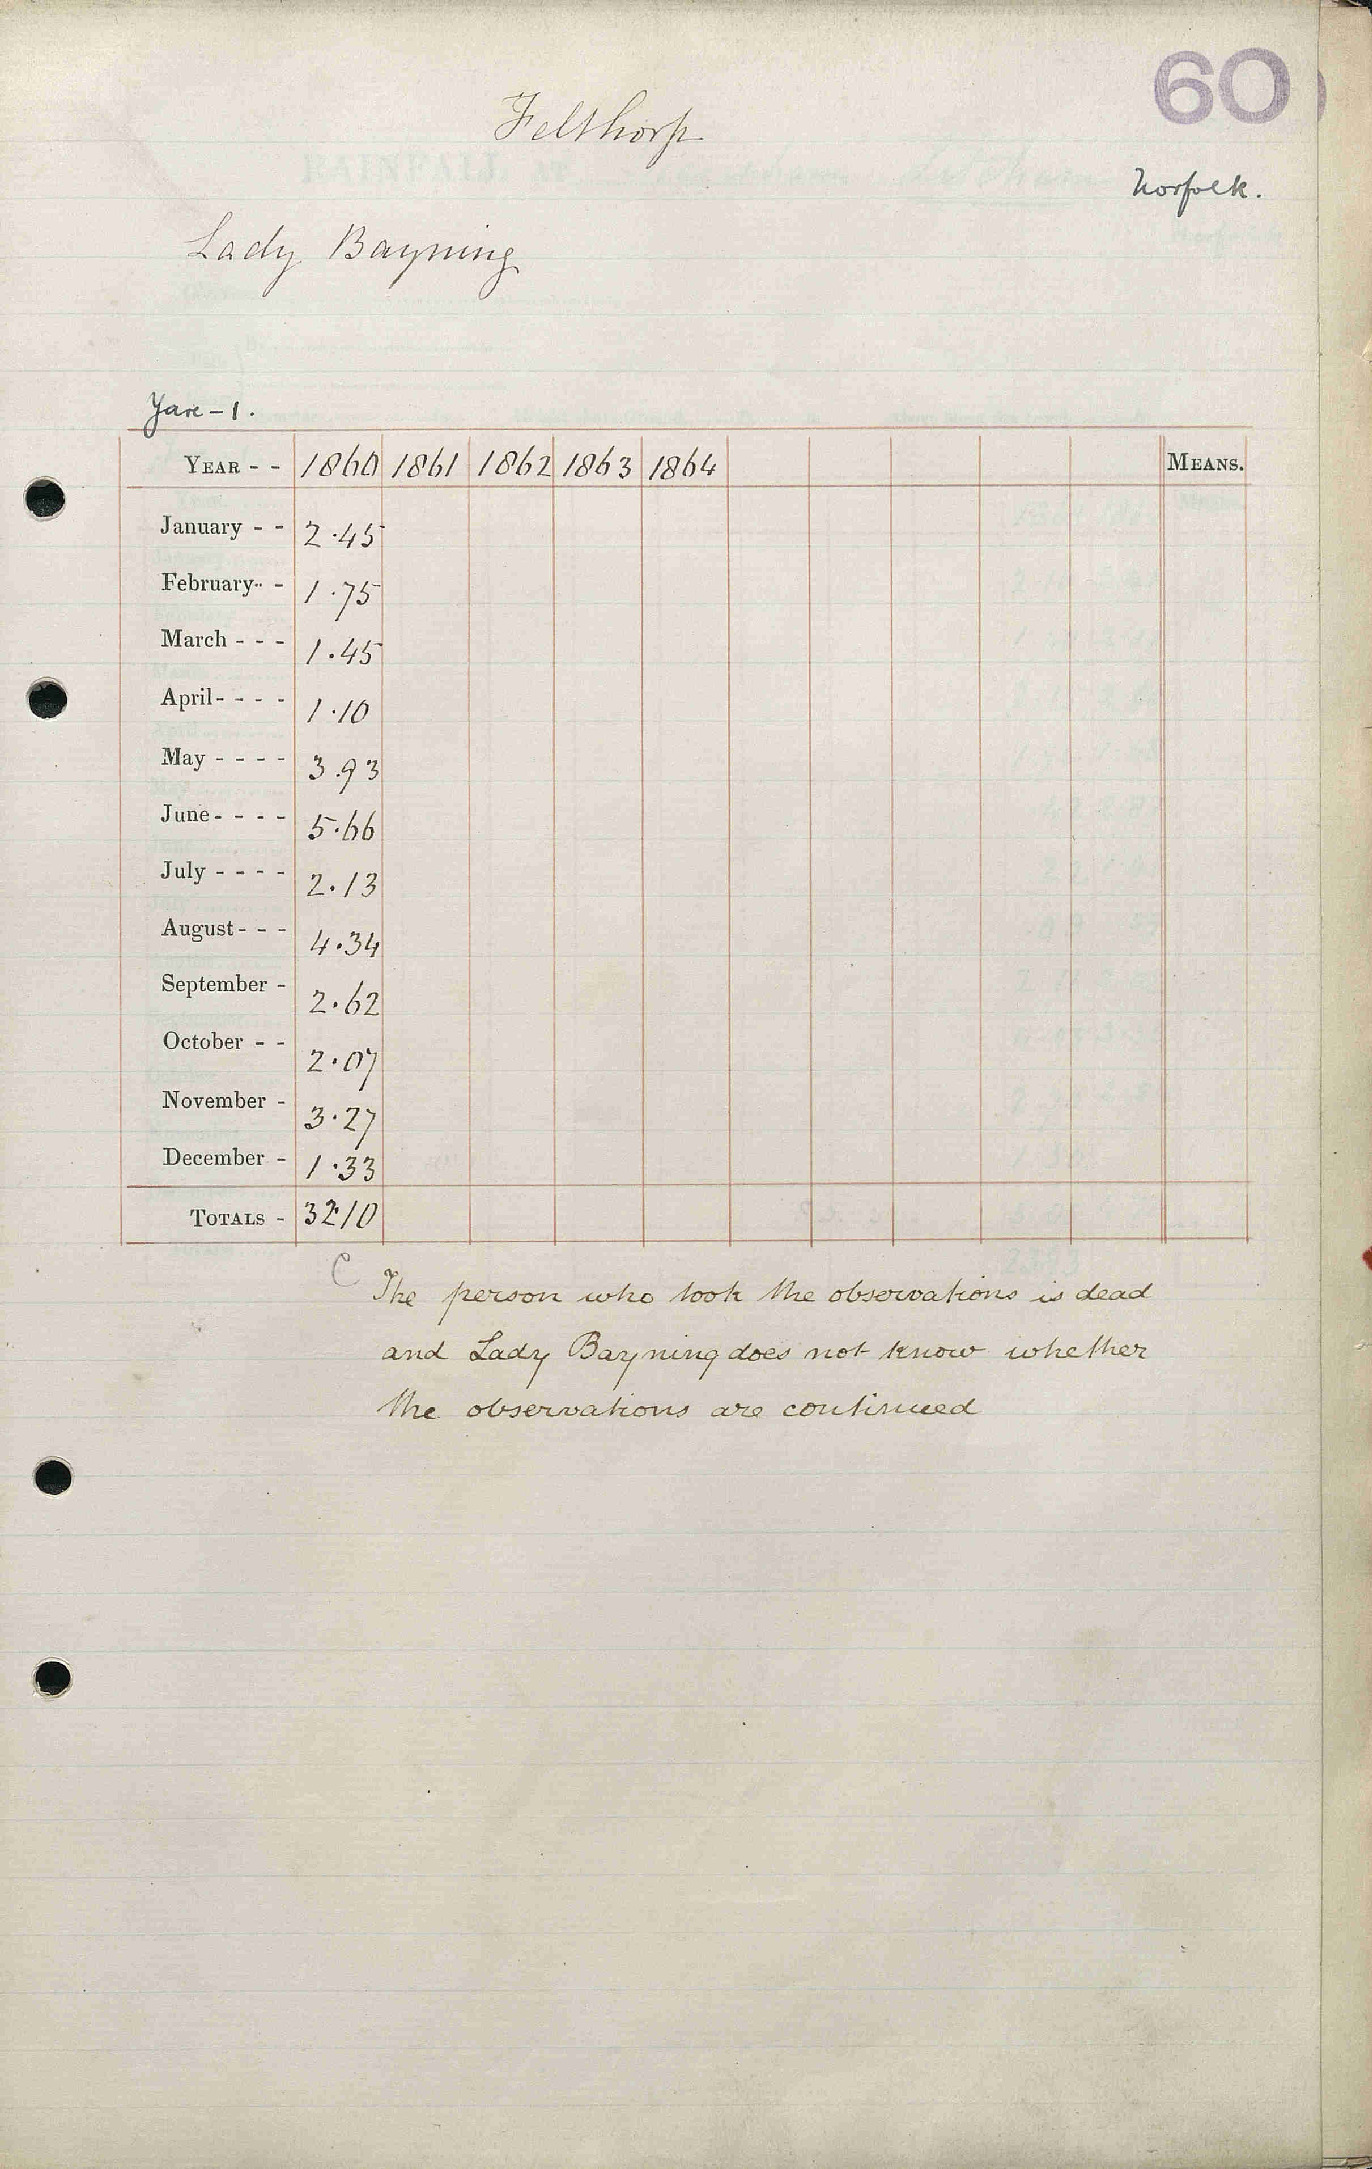 60
Felthorp
Norfolk.
Lady Bayning
Yare - 1.
YEAR - - 1860 1861 1862 1863 1864 MEANS.
January - - 2.45
February - - 1.75
March - - - 1.45
April - - - - 1.10
May - - - - 3.93
June - - - - 5.66
July - - - - 2.13
August - - - 4.34
September - 2.62
October - - 2.07
November - 3.27
December - 1.33
TOTALS - 32.10
C
The person who took the observations is dead
and Lady Bayning does not know whether
the observations are continued